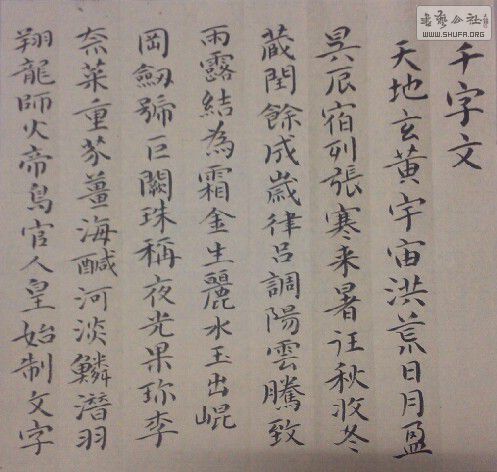 千字文
天地玄黃宇宙洪荒日月盈
昃辰宿列張寒来暑往秋收冬
蔵閏餘成歳律吕調陽雲騰致
雨露結為霜金生麗水玉出崐
岡劔號巨闕珠稱夜光果珎李
柰菜重芥薑海鹹河淡鱗潛羽
翔龍師火帝鳥官人皇始制文字
書藝公社
WWW.SHUFA.ORG